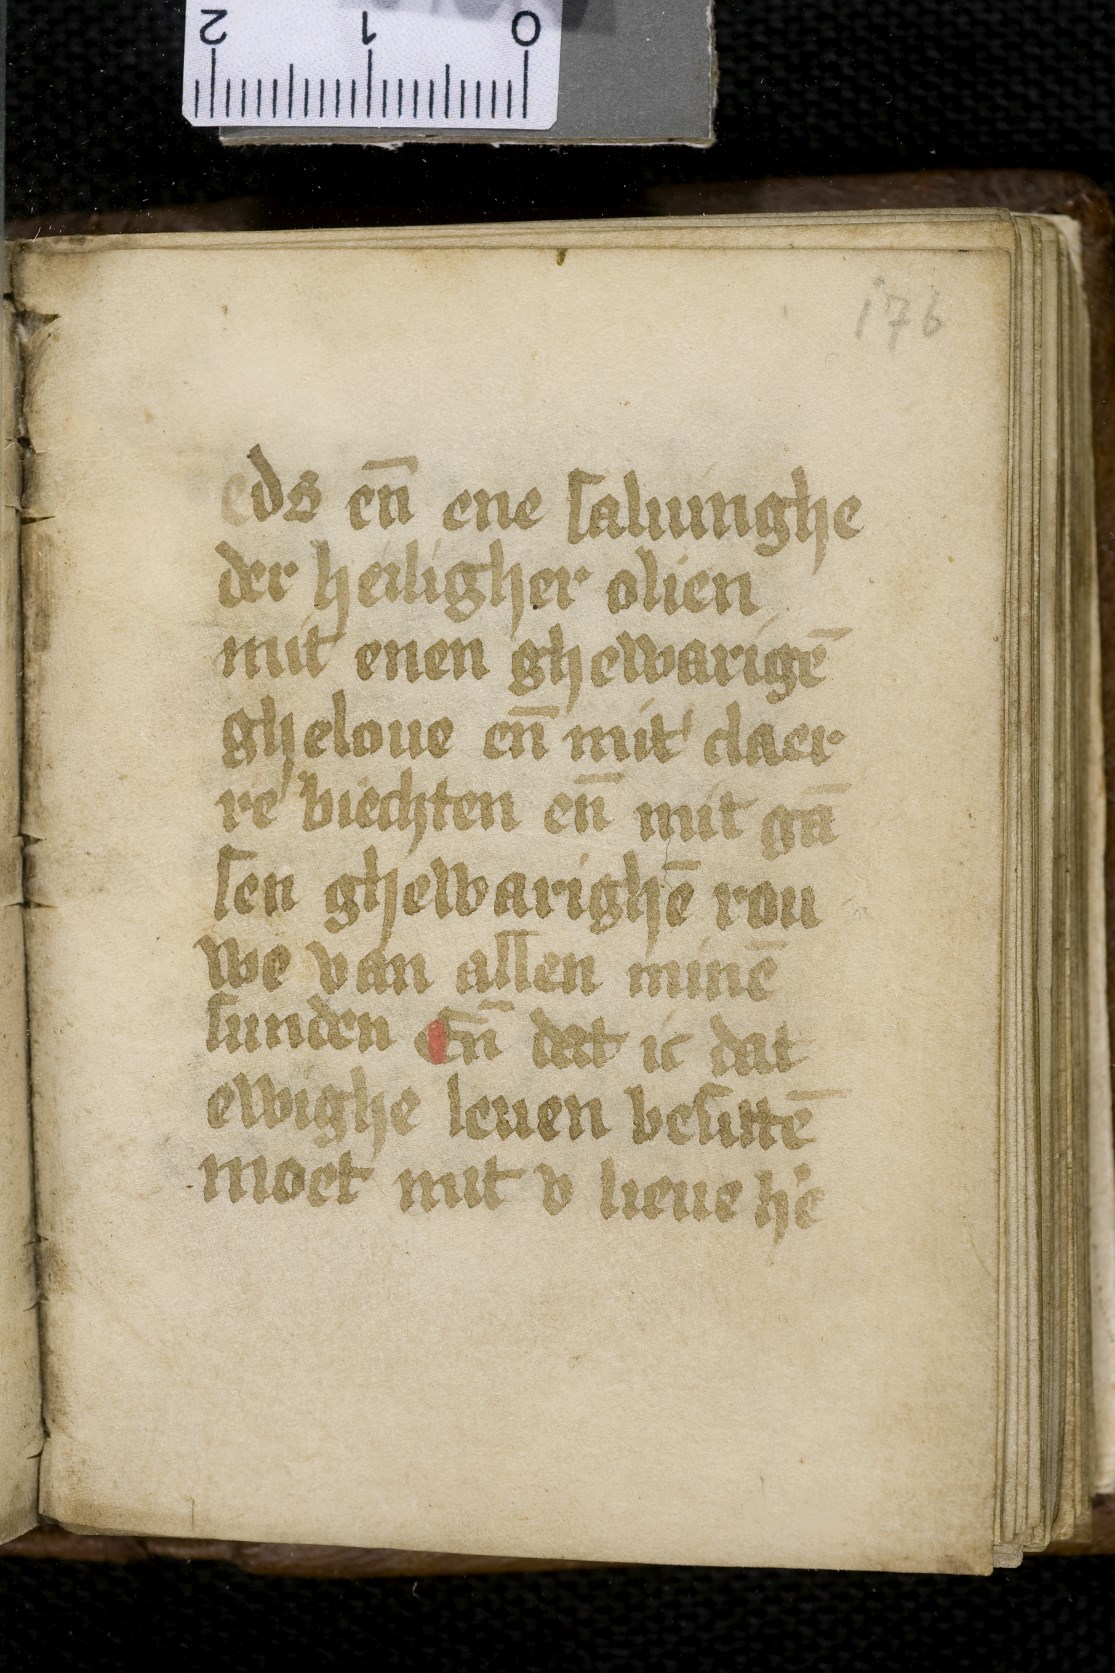 2 1 0
176
eds en̄ ene saluinghe
der heiligher olien
mit enen ghewarigē
gheloue en̄ mit claer
re biechten en̄ mit gā
sen ghewarighē rou
we van allen minē
sunden En̄ dat ic dat
ewighe leuen besittē
moet mit v lieue h'e